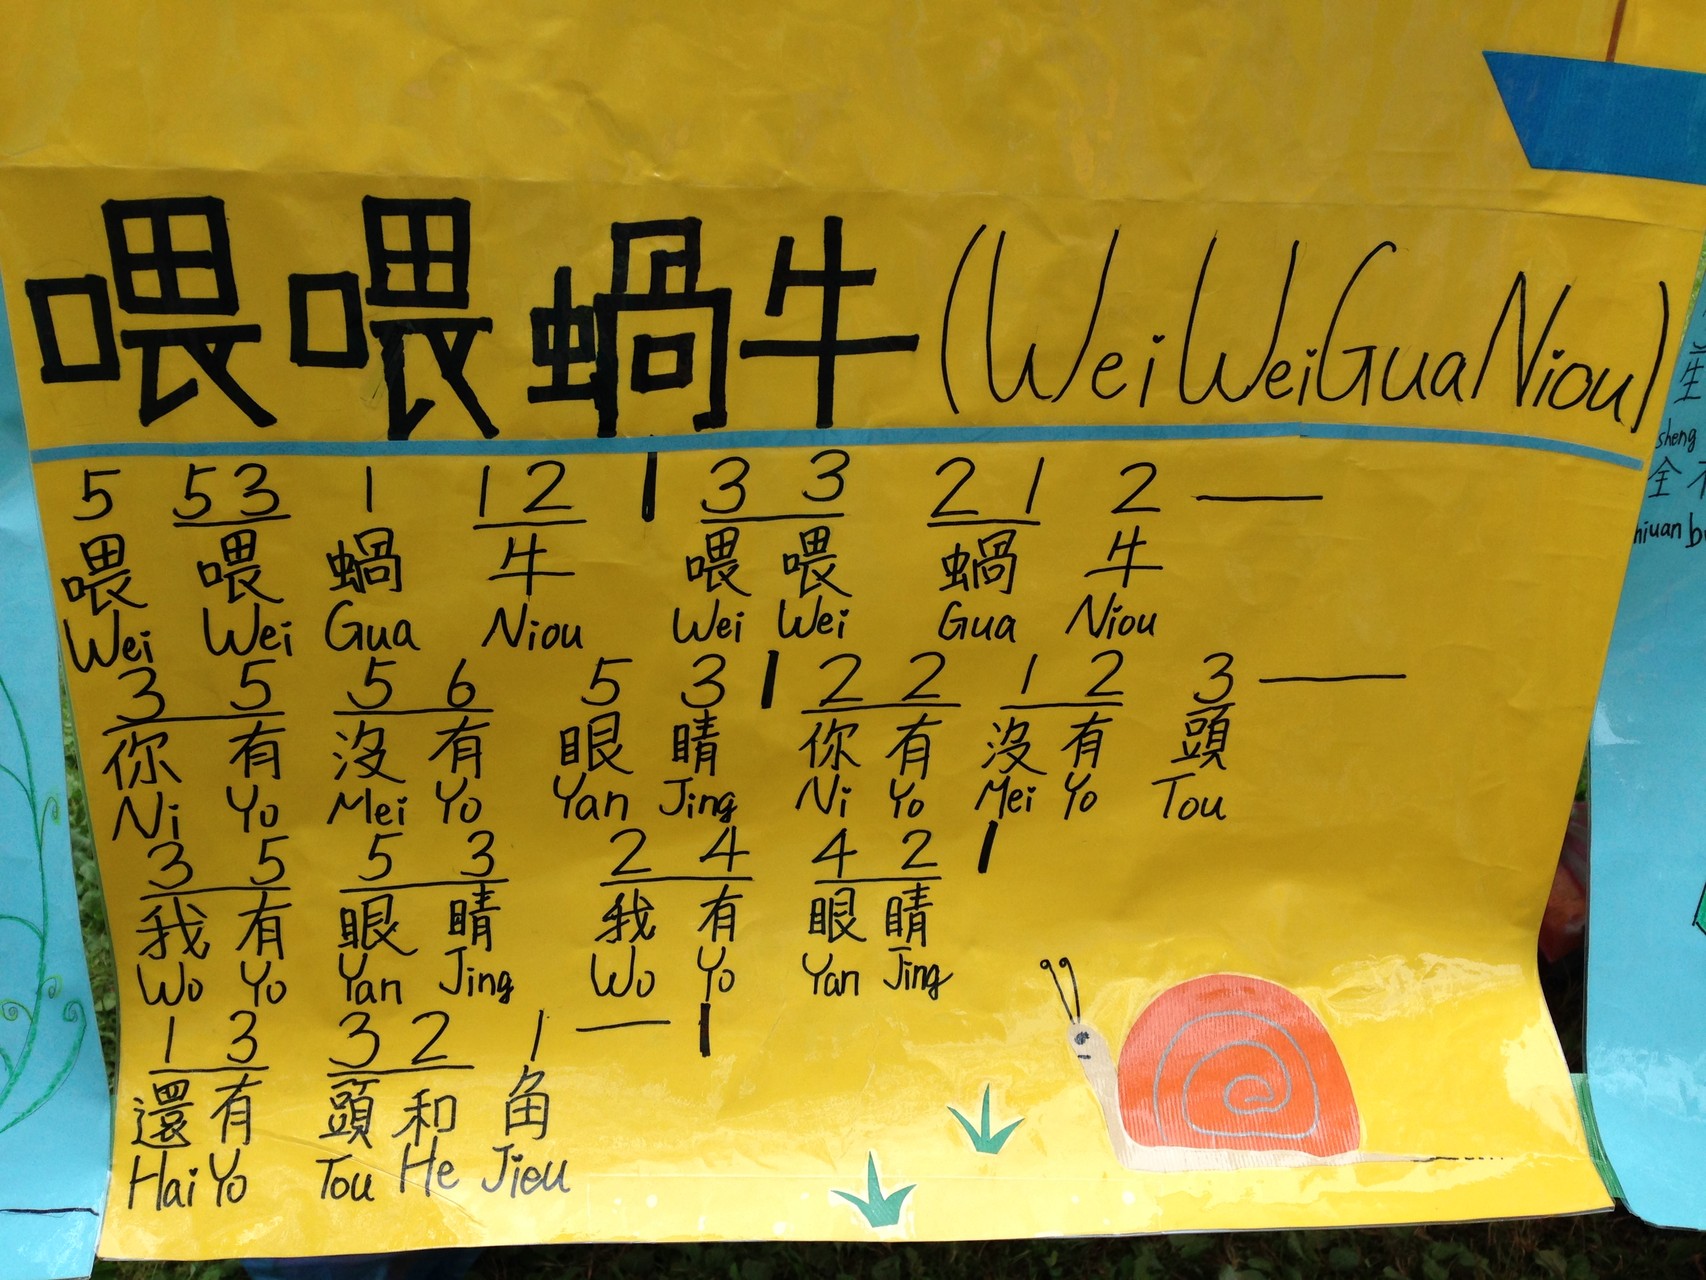 喂喂蝸牛(Wei Wei Gua Niou)
5 53 1 12 | 3 3 2 1 2 —
喂 喂 蝸 牛 喂 喂 蝸 牛
Wei Wei Gua Niou Wei Wei Gua Niou
3 5 5 6 5 3 | 2 2 1 2 3 —
你 有 沒 有 眼 睛 你 有 沒 有 頭
Ni Yo Mei Yo Yan Jing Ni Yo Mei Yo Tou
3 5 5 3 2 4 4 2 |
我 有 眼 睛 我 有 眼 睛
Wo Yo Yan Jing Wo Yo Yan Jing
1 3 3 2 1 — |
還 有 頭 和 角
Hai Yo Tou He Jieu
生
sheng
全